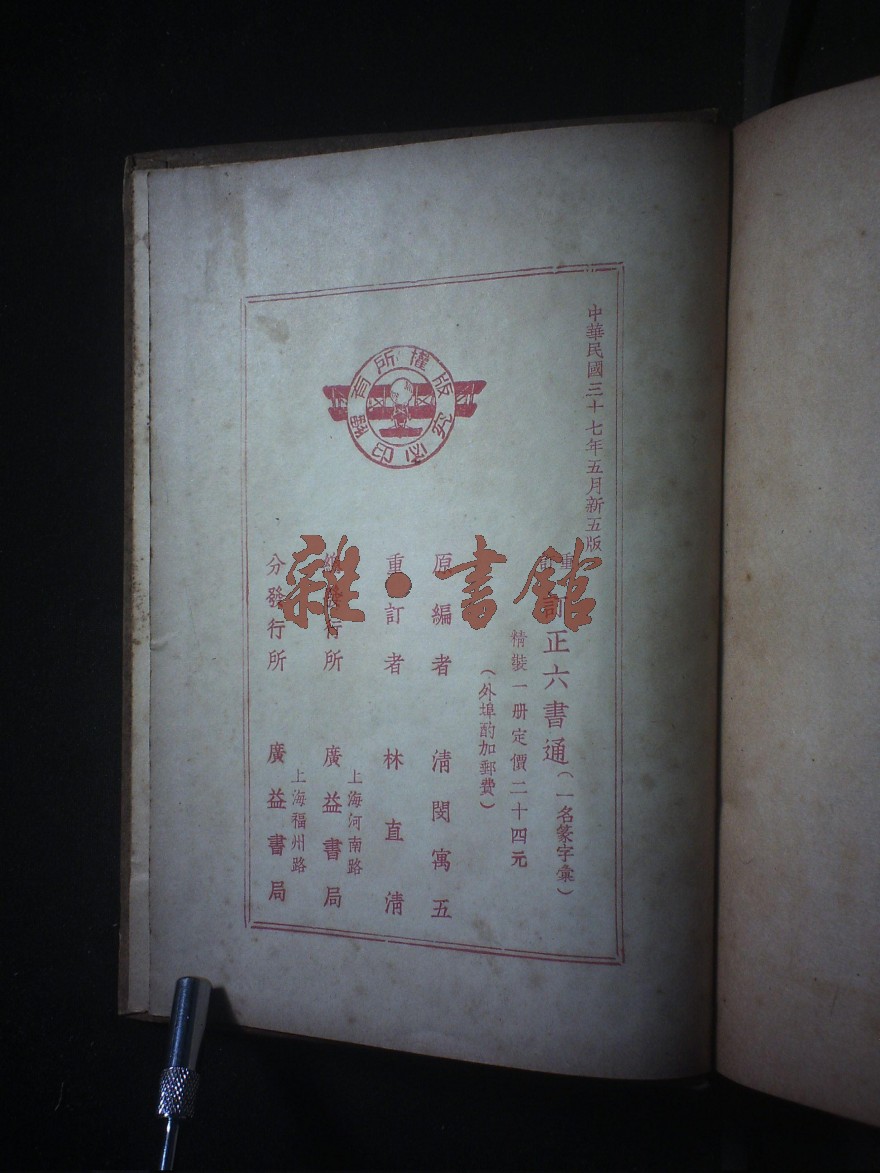 中華民國三十七年五月新五版
重訂正六書通（一名篆字彙）
精裝一册定價二十四元
（外埠酌加郵費）
原編者 清閔寓五
重訂者 林直清
總發行所 上海河南路 廣益書局
分發行所 上海福州路 廣益書局
版權所有
翻印必究
雜·書館